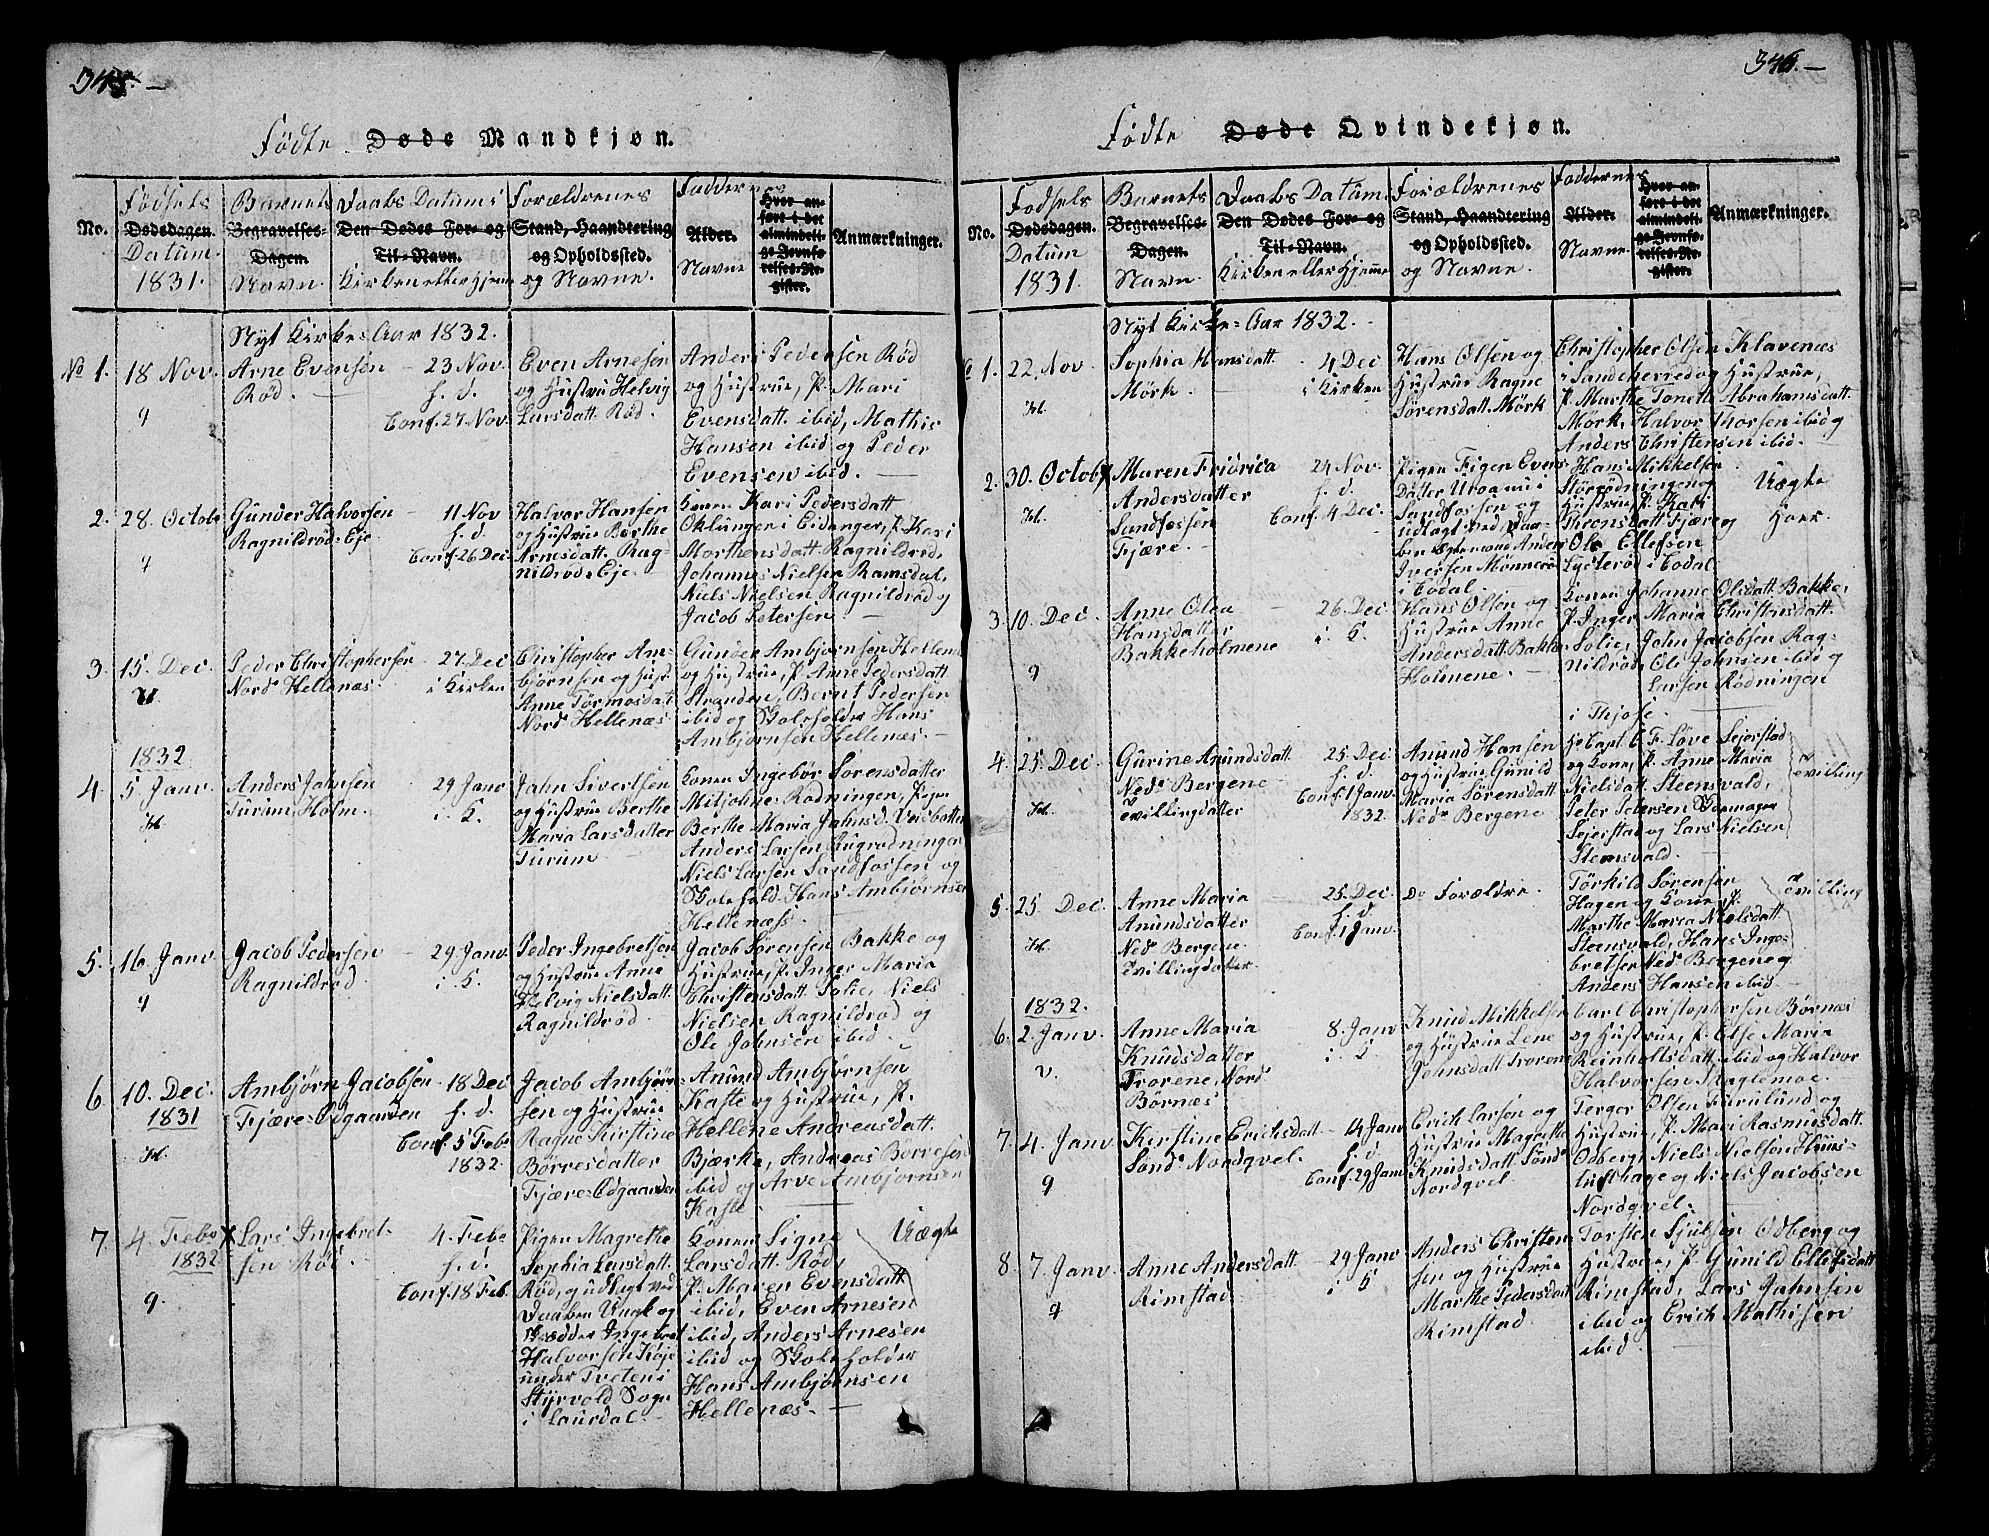 345. —
Födte Døde Mandkjøn.
No.
Födsels
Dødsdagen.
Datum
1831.
Barnets
Begravelses-
Dagen.
Navn
Daabs Datum i
Den Dødes For- og
Til-Navn.
Kirken eller Hjem
Forældrenes
Stand, Haandtering
og Opholdssted.
og Navne.
Faddernes
Alder.
Navne
Hvor an-
ført i det
almindeli-
ge Jevnfø-
relses-Re-
gister.
Anmærkninger.
Nyt Kirke-Aar 1832.
No 1.
18 Nov.
q
Arne Evensen
Rød.
23 Nov.
h. d.
Conf. 27. Nov.
Even Arnesen
og Hustrue Helvig
Larsdatt. Rød.
Anders Pedersen Rød
og Hustrue, P. Mari
Evensdatt. ibid, Mathis
Hansen ibid og Peder
Evensen ibid.
2.
28. Octobr
q
Gunder Halvorsen
Ragnildrød-Eje
11 Nov
h. d.
Conf. 26 Dec.
Halvor Hansen
og Hustrue Berthe
Arnesdatt. Rag-
nildrød-Eje
Konen Kari Pedersdatt
Oklungen i Eidanger, P. Kari
Morthensdatt. Ragnildrød,
Johannes Nielsen Ramsdal,
Niels Nielsen Ragnildrød og
Jacob Petersen
3.
15. Dec
Peder Christophersen
Nordr Hellenæs
27. Dec
i Kirken
Christopher Am-
bjørnsen og Hust.
Anne Tormosdat
Nordr Hellenæs
Gunder Ambjørnsen Hellenæ
og Hustrue, P. Anne Pedersdatt
Stranden, Bernt Pedersen
ibid og Skoleholder Hans
Ambjørnsen Hellenæs.
1832
4.
5. Janv.
Anders Jahnsen
Turum, Holm.
29 Janv
i K.
Jahn Sivertsen
og Hustrue Berthe
Maria Larsdatter
Turum
Konen Ingebør Sørensdatter
Mitjohne-Rødningen, Pigen
Berthe Maria Jahnsd. Veisbatten
Anders Larsen Augrødningen
Niels Larsen Sandfossen og
Skolehold. Hans Ambjørnsen
Hellenæss.
5.
16. Janv
q
Jacob Pedersen
Ragnildrød
29. Janv.
i K.
Peder Ingebretsen
og Hustrue Anne
Helvig Nielsdatt.
Ragnildrød
Jacob Sørensen Bakke og
Hustrue, P. Inger Maria
Christensdatt. Solie, Niels
Nielsen Ragnildrød og
Ole Johnsen ibid.
6.
10. Dec.
1831
Ambjørn Jacobsen
Fjære-Ødgaarden
18 Dec
h. d.
Conf. 5 Febr
1832.
Jacob Ambjørn-
sen og Hustrue
Ragne Kirstine
Børresdatter
Fjære-Ødgaarden
Anund Ambjørnsen
Kaste og Hustrue, P.
Hellene Andreasdatt.
Bjærke, Andreas Børresen
ibid og Arve Ambjørnsen
Kaste.
7.
4. Febr
1832
q.
Lars Ingebret-
sen Rød.
4. Febr
h. d.
Conf. 18 Feb.
Pigen Magrethe
Sophia Larsdatt.
Rød, og udlagt ved
Daaben Ungk. og
Skrædder Ingebret
Halvorsen Køje
under Tveten i
Styrvold Sogn
i Laurdal.
Konen Signe
Larsdatt. Rød,
P. Maren Evensdatt
ibid, Even Arnesen
ibid, Anders Arnesen
ibid og Skoleholder
Hans Ambjørnsen
Hellenæs.
Uægte
346. —
Födte Døde Qvindekjøn.
No.
Fødsels
Dødsdagen.
Datum
1831.
Barnets
Begravelses-
Dagen.
Navn
Daabs Datum.
Den Dødes For- og
Til-Navn.
Kirken eller Hjemme
Forældrenes
Stand, Haandtering
og Opholdssted.
og Navne.
Faddernes
Alder.
Navne
Hvor an-
ført i det
almindeli-
ge Jevnfø-
relses-Re-
gister.
Anmærkninger.
Nyt Kirke-Aar 1832.
1.
22. Nov
Sophia Hansdatt.
Mørk.
4 Dec
i Kirken
Hans Olsen og
Hustrue Ragne
Sørensdatt. Mørk
Christopher Olsen Klavenæs
i Sandeherred og Hustrue,
P. Marthe Tonette Abrahamsdatt.
Mørk, Halvor Thorsen ibid og
Anders Christensen ibid.
2.
30. Octobr
Maren Fridrica
Andersdatter
Sandfossen
Fjære.
24 Nov.
h. d.
Conf. 4 Dec.
Pigen Sigen Evens-
Datter
Sandfossen og
udlagt ved Daa-
ben Anders
Iversen Mønnerø
i Hodal
Hans Mikkelsen
Størødningen og
Hustrue, P. Kari
Theonsdatt. Fjære og
Ole Ellefsen
Lysterød i Hodal
Uægte
Hoer.
3.
10. Dec.
q
Anne Olea
Hansdatter
Bakkeholmene
26. Dec
i K.
Hans Olsen og
Hustrue Anne
Andersdatt. Bakke
Holmene.
Konen Johanne Olsdatt. Bakke,
P. Inger Maria Christensdatt.
Solie, John Jacobsen Rag-
nildrød, Ole Johnsen ibid og
Larsen Rødningen
i Thjøse.
4.
25. Dec.
Gurine Anundsdatt.
Nedr Bergene
Tvillingdatter
25. Dec
h. d.
Conf. 1 Janv.
1832.
Anund Hansen
og Hustrue Gunild
Maria Sørensdatt
Nedr Bergene
Hr Capt. C. F. Løve Sejerstad
og Kone, P. Anne Maria
Nielsdatt. Steensvald,
Peter Petersen Skomager
Sejerstad og Lars Nielsen
Stensvald.
Tvilling
5.
25 Dec.
Anne Maria
Anundsdatter
Nedr Bergene
Tvillingdatter
25. Dec
h. d.
Conf. 1 Janv.
De Forældre.
Törkild Sørensen
Hagen og Kone, P.
Marthe Maria Nielsdatt.
Steensvald, Hans Inge-
bretsen Nedr Bergene og
Anders Hansen ibid
Tvilling
1832.
6.
2. Janv.
v.
Anne Maria
Knudsdatter
Trorene, Nordr
Børnæs
8. Janv
i K
Knud Mikkelsen
og Hustrue Lene
Johnsdatt Trorene
Carl Christophersen Børnæs
og Hustrue, P. Else Maria
Reinholtsdatt. ibid og Halvor
Halvorsen Skaglemoe.
7.
4. Janv
q
Kirstine Erichsdatt
Søndr Nordqvel.
14 Janv
h. d.
Conf. 29 Janv
Erich Larsen og
Hustrue Magrethe
Knudsdatt. Søndr
Nordqvel
Terger Olsen Furulund og
Hustrue, P. Mari Rasmusdatt.
Odberg, Niels Nielsen Huus-
tufthage og Niels Jacobsen
Nordqvel.
8.
7. Janv.
q
Anne Andersdatt.
Rimstad
29 Janv
i K
Anders Christen-
sen og Hustrue
Marthe Pedersdatt
Rimstad
Torsten Sjulsen Odberg og
Hustrue, P. Gunild Ellefsdatt
Rimstad, Lars Jahnsen
ibid og Erich Mathisen
ibid.